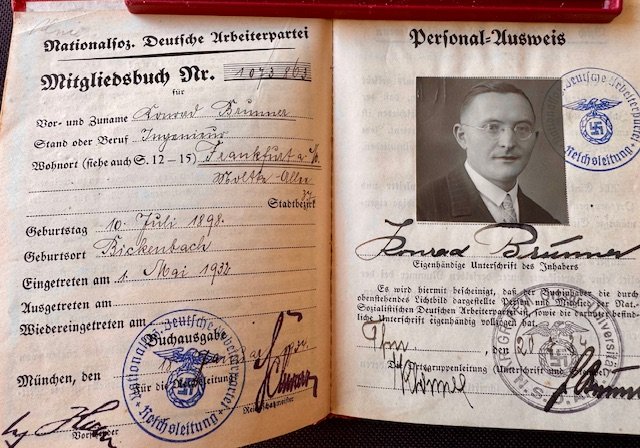 Nationalsoz. Deutsche Arbeiterpartei
Mitgliedsbuch Nr. 1073863
für
Vor- und Zuname Konrad Brunner
Stand oder Beruf Ingenieur
Wohnort (siehe auch S. 12 – 15) Frankfurt a/M
Moltke Allee
Stadtbezirk
Geburtstag 10. Juli 1898.
Geburtsort Bickenbach
Eingetreten am 1. Mai 1932
Ausgetreten am
Wiedereingetreten am
Buchausgabe
München, den
Für die Reichsleitung
Vorsitzender
Reichsschatzmeister
Nationalsoz. Deutsche Arbeiterpartei
Reichsleitung
Personal-Ausweis
Nationalsoz. Deutsche Arbeiterpartei
Reichsleitung
Konrad Brunner
Eigenhändige Unterschrift des Inhabers
Es wird hiermit bescheinigt, daß der Buchinhaber die durch
obenstehendes Lichtbild dargestellte Person und Mitglied der Nat.-
Sozialistischen Deutschen Arbeiterpartei ist, sowie die darunter befind-
liche Unterschrift eigenhändig vollzogen hat.
, den 20
Der Ortsgruppenleitung (Unterschrift und Stempel)